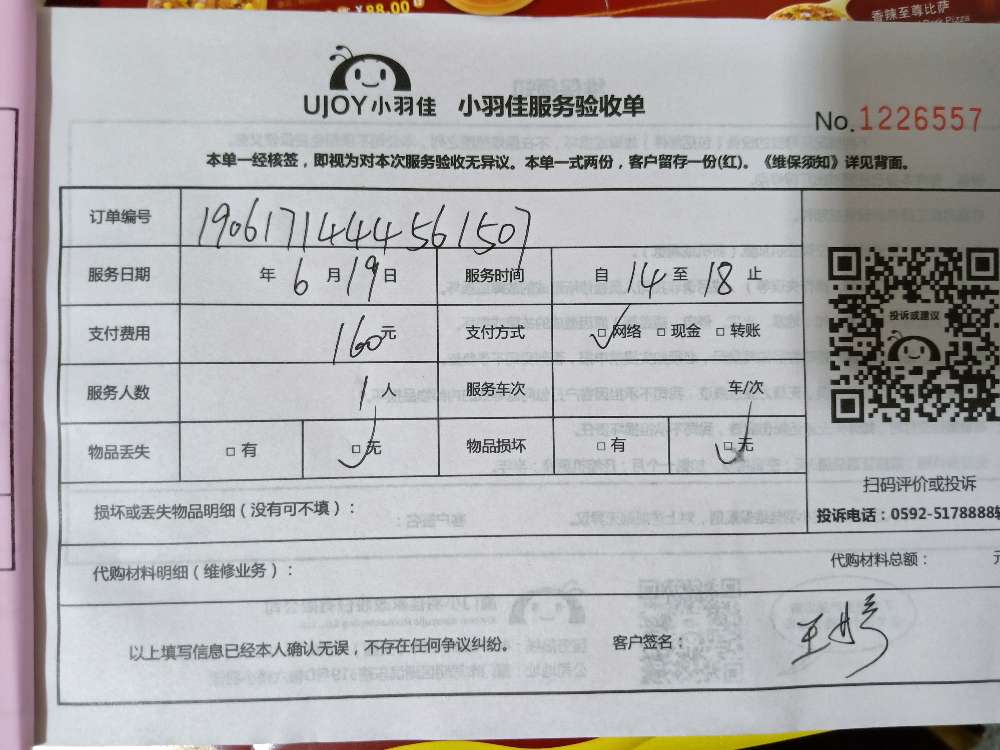 ¥88.00
香辣至尊比萨
UJOY小羽佳 小羽佳服务验收单
No.1226557
本单一经核签，即视为对本次服务验收无异议。本单一式两份，客户留存一份(红)。《维保须知》详见背面。
订单编号 1906171444561507
服务日期 年 6 月 19 日 服务时间 自 14 至 18 止
投诉或建议
支付费用 160元 支付方式 □网络 □现金 □转账
服务人数 1 人 服务车次 车/次
物品丢失 □有 □无 物品损坏 □有 □无
扫码评价或投诉
损坏或丢失物品明细（没有可不填）：
投诉电话：0592-5178888
代购材料明细（维修业务）：
代购材料总额：
以上填写信息已经本人确认无误，不存在任何争议纠纷。 客户签名：